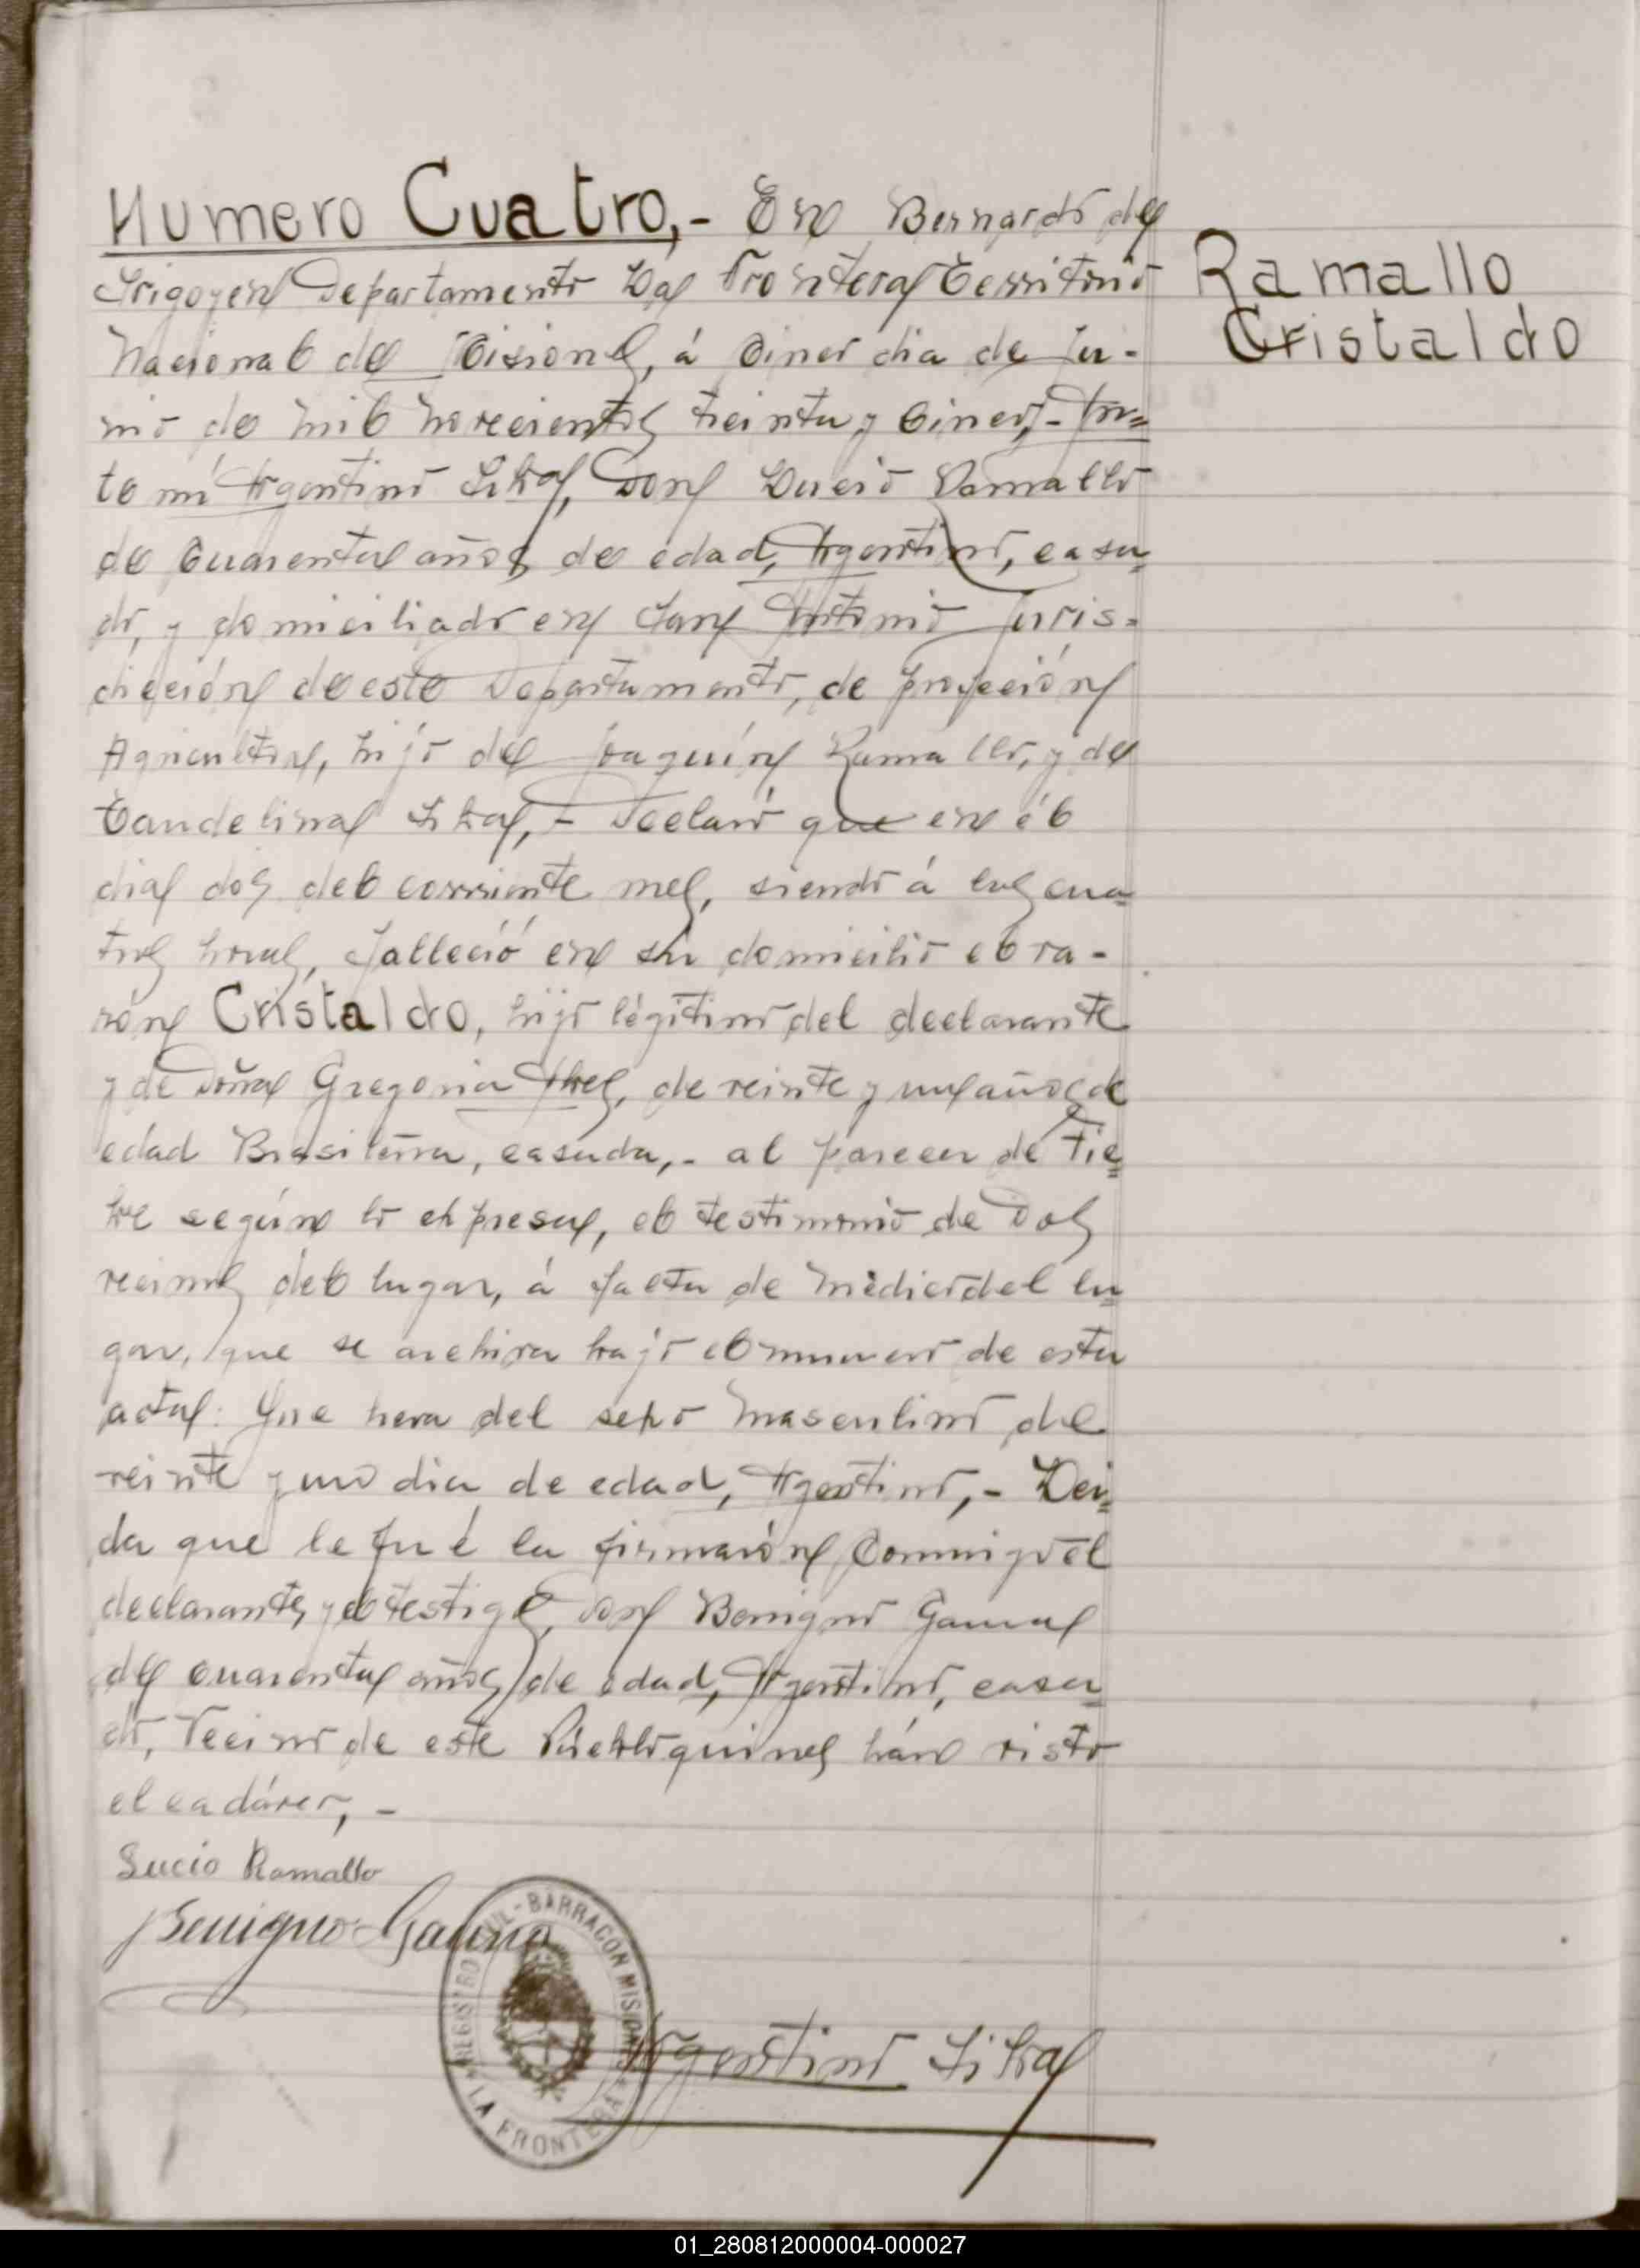 Numero Cuatro,- En Bernardo de
Irigoyen Departamento La Frontera Territorio
Nacional de Misiones, á Cinco dia de Ju-
nio de mil novecientos treinta y Cinco,- An=
te mí Argentino Silva, Don Lucio Ramallo
de Cuarenta años de edad, Argentino, casa=
do, y domiciliado en San Antonio Juris-
dicción de este Departamento, de profeción
Agricultor, hijo de Joaquín Ramallo, y de
Candelina Silva,- Declaró que en él
dia dos del corriente mes, siendo á las cua=
tro horas, falleció en su domicilio el va-
rón Cristaldo, hijo légitimo del declarante
y de Doña Gregoria, de veinte y un años de
edad Brasilera, casada,- al parecer de Fie=
bre según lo expresa, el testimonio de Dos
vecinos del lugar, á falta de médico del lu=
gar, que se archiva bajo el numero de esta
acta: Que hera del sexo masculino de
veinte y uno dia de edad, Argentino,- Lei=
da que le fué la firmarón Conmigo el
declarante, y el testigo, Don Benigno Gauna
de cuarenta años de edad, Argentino, casa=
do, Vecino de este Pueblo quines hán visto
el cadáver,-
Lucio Ramallo
Benigno Gauna
Argentino Silva
Ramallo
Cristaldo
REGISTRO CIVIL - BARRACON MISIONES
LA FRONTERA
01_280812000004-000027